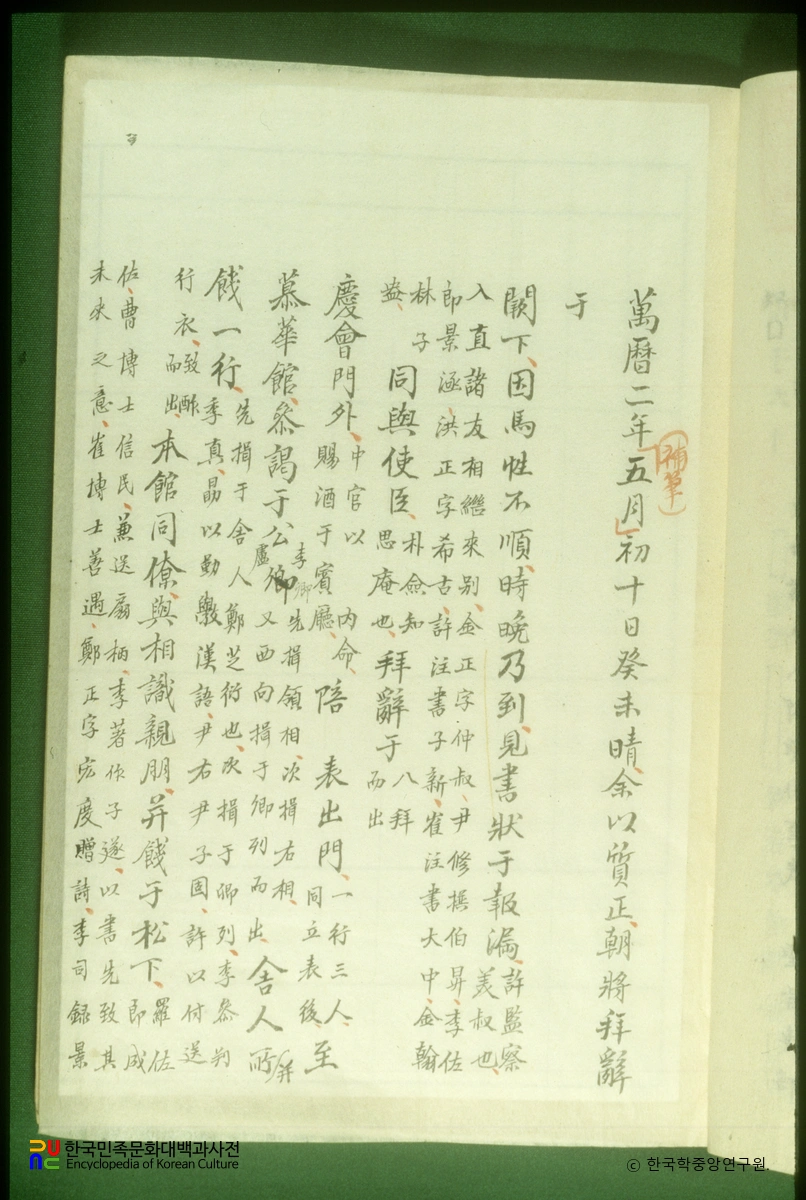 萬曆二年五月初十日癸未晴余以質正朝將拜辭
補筆
于
闕下因馬性不順時晚乃到見書狀于報漏許監察美叔也
入直諸友相繼來别金正字仲叔尹修撰伯昇李佐
郎景涵洪正字希古許注書子新崔注書大中金翰
林子
盎同與使臣朴僉知思庵也拜辭于八拜而出
慶會門外中官以內命賜酒于賓廳陪表出門一行三人同立表後至
慕華館叅謁于公卿李卿先揖領相次揖右相
盧卿又西向揖于卿列而出舍人所
餞一行先揖于舍人鄭芝衍也次揖于卿列李叅判
季真勗以勤學漢語尹右尹子固許以付送
行衣致酢而出本館同僚與相識親朋并餞于松下羅佐
郎成
佐曹博士信民兼送扇柄李著作子遂以書先致其
未來之意崔博士善遇鄭正字宏慶贈詩李司錄景
한국민족문화대백과사전
Encyclopedia of Korean Culture
ⓒ 한국학중앙연구원